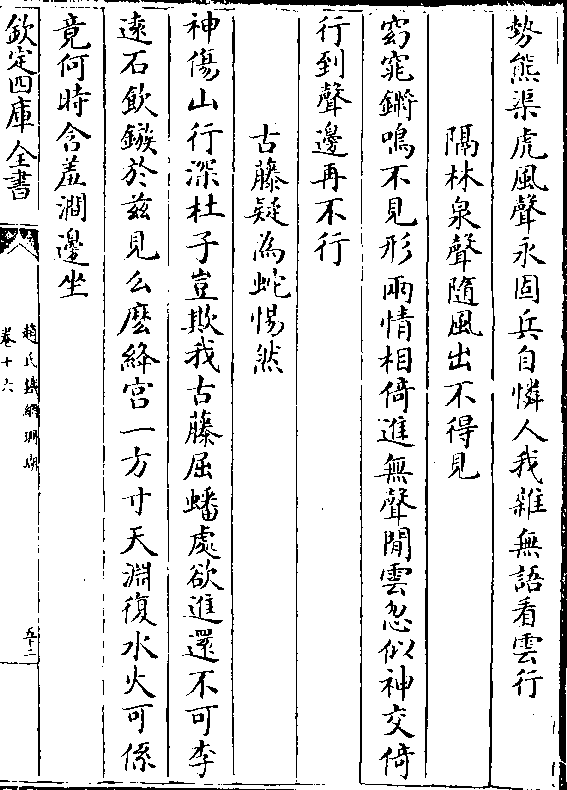 勢熊渠虎風聲永固兵自憐人我雜無語看雲行
隔林泉聲隨風出不得見
窈窕鏘鳴不見形兩情相倚進無聲閒雲忽似神交倚
行到聲邊再不行
古藤疑為蛇惕然
神傷山行深杜子豈欺我古藤屈蟠處欲進還不可李
遠石飲鏃於兹見么麽絳宮一方寸天淵復水火可係
竟何時含羞澗邊坐
欽定四庫全書
趙氏鐵網珊瑚
卷十六
五二